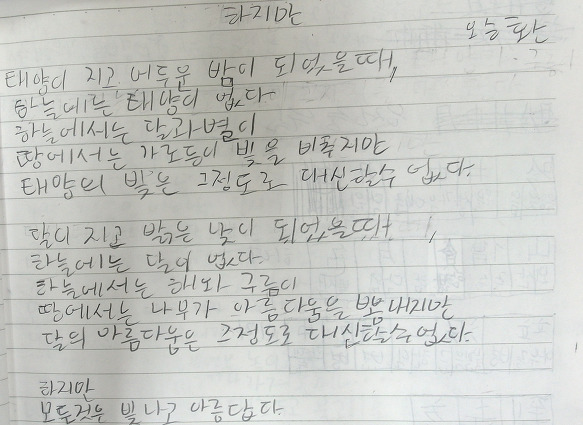 하지만
오늘
태양이 지고 어두운 밤이 되었을때,
하늘에는 태양이 없다
하늘에서는 달과 별이
땅에서는 가로등이 빛을 비추지만
태양의 빛은 그정도로 대신할수 없다.
달이 지고 밝은 낮이 되었을때,
하늘에는 달이 없다.
하늘에서는 해와 구름이
땅에서는 나무가 아름다움을 뽐내지만
달의 아름다움은 그정도로 대신할수없다.
하지만
모든것은 빛나고 아름답다